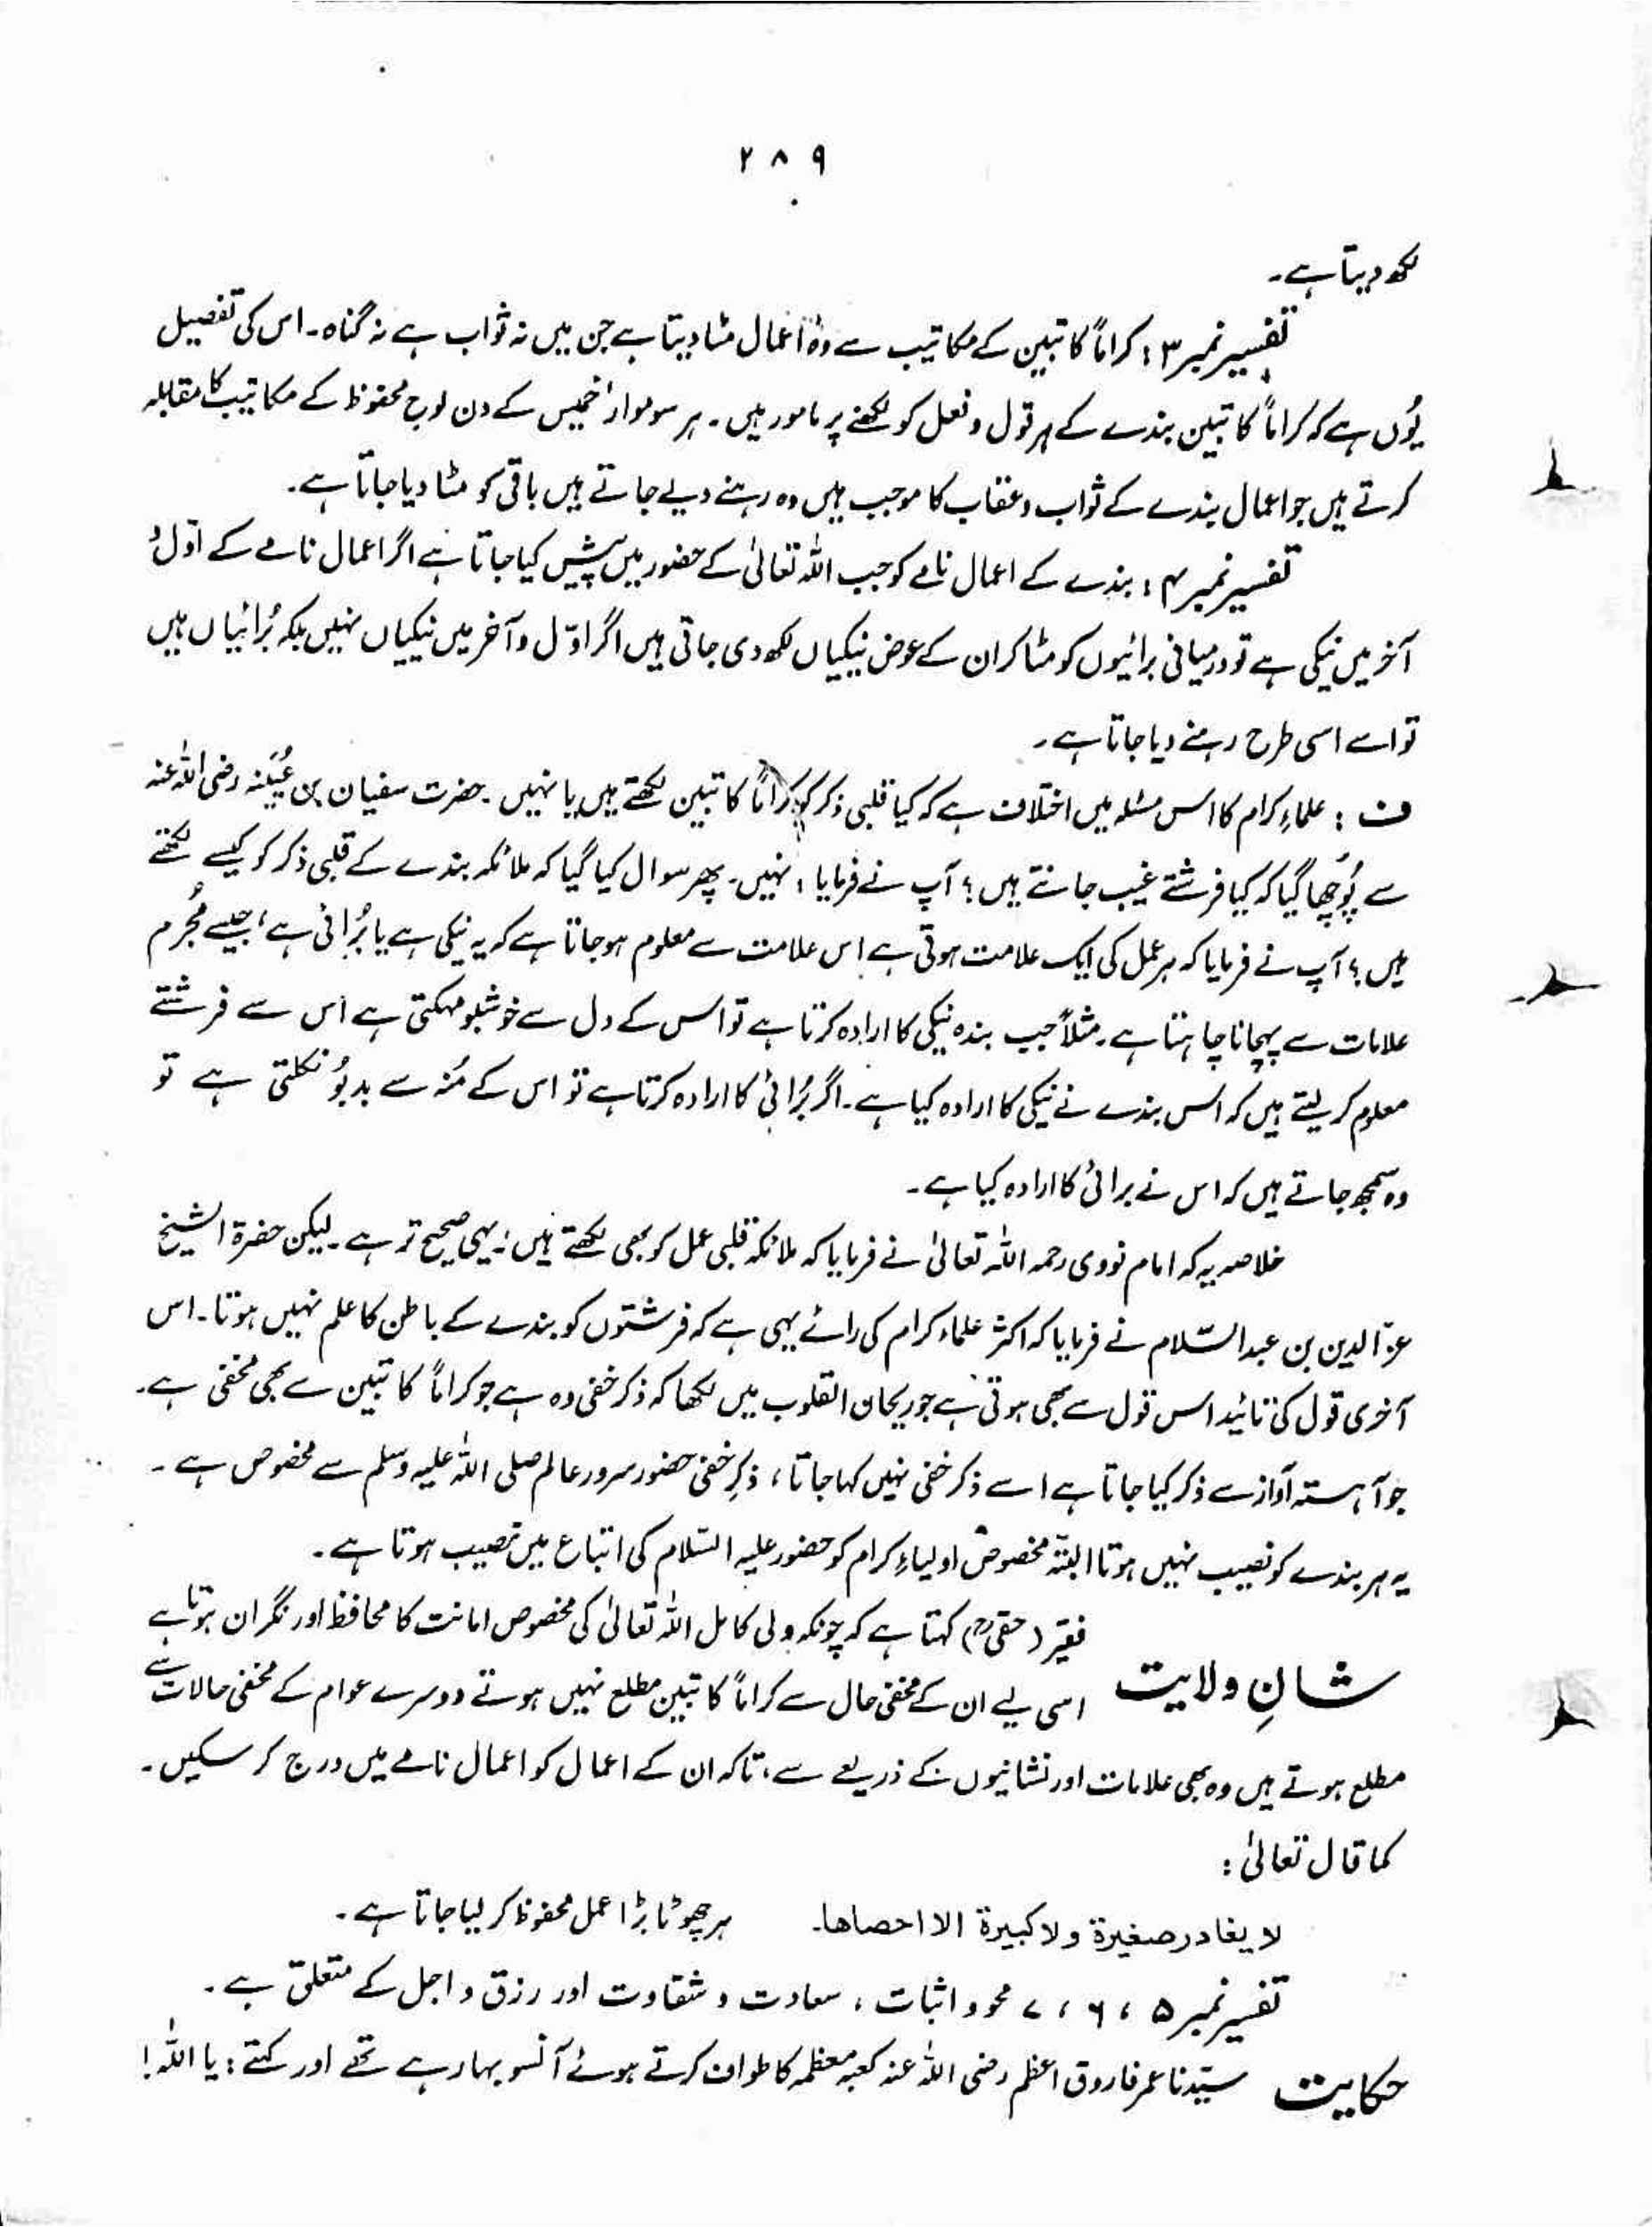 ۲۸۹
لکھ دیتا ہے۔
تفسیر نمبر ۳ : کراماً کاتبین کے مکاتیب سے وہ اعمال مٹا دیتا ہے جن میں نہ ثواب ہے نہ گناہ۔ اس کی تفصیل
یُوں ہے کہ کراماً کاتبین بندے کے ہر قول و فعل کو لکھنے پر مامور ہیں۔ ہر سوموار، خمیس کے دن لوح محفوظ کے مکاتیب کا مقابلہ
کرتے ہیں جو اعمال بندے کے ثواب و عقاب کا موجب ہیں وہ رہنے دیے جاتے ہیں باقی کو مٹا دیا جاتا ہے۔
تفسیر نمبر ۴ : بندے کے اعمال نامے کو جب اللہ تعالیٰ کے حضور میں پیش کیا جاتا ہے اگر اعمال نامے کے اوّل و
آخر میں نیکی ہے تو درمیانی برائیوں کو مٹا کر ان کے عوض نیکیاں لکھ دی جاتی ہیں اگر اوّل و آخر میں نیکیاں نہیں بلکہ بُرائیاں ہیں
تو اسے اسی طرح رہنے دیا جاتا ہے۔
ف : علماءِ کرام کا اس مسئلہ میں اختلاف ہے کہ کیا قلبی ذکر کو کراماً کاتبین لکھتے ہیں یا نہیں۔ حضرت سفیان بن عُیَینہ رضی اللہ عنہ
سے پُوچھا گیا کہ کیا فرشتے غیب جانتے ہیں؟ آپ نے فرمایا : نہیں۔ پھر سوال کیا گیا کہ ملائکہ بندے کے قلبی ذکر کو کیسے لکھتے
ہیں؟ آپ نے فرمایا کہ ہر عمل کی ایک علامت ہوتی ہے اس علامت سے معلوم ہو جاتا ہے کہ یہ نیکی ہے یا بُرائی ہے، جیسے مُجرم
علامات سے پہچانا جاہتا ہے۔ مثلاً جب بندہ نیکی کا ارادہ کرتا ہے تو اس کے دل سے خوشبو مہکتی ہے اس سے فرشتے
معلوم کر لیتے ہیں کہ اس بندے نے نیکی کا ارادہ کیا ہے۔ اگر بُرائی کا ارادہ کرتا ہے تو اس کے مُنہ سے بدبُو نکلتی ہے تو
وہ سمجھ جاتے ہیں کہ اس نے برائی کا ارادہ کیا ہے۔
خلاصہ یہ کہ امام نووی رحمہ اللہ تعالیٰ نے فرمایا کہ ملائکہ قلبی عمل کو بھی لکھتے ہیں، یہی صحیح تر ہے۔ لیکن حضرۃ الشیخ
عزّ الدین بن عبد السّلام نے فرمایا کہ اکثر علماء کرام کی رائے یہی ہے کہ فرشتوں کو بندے کے باطن کا علم نہیں ہوتا۔ اس
آخری قول کی تائید اس قول سے بھی ہوتی ہے جو ریحان القلوب میں لکھا کہ ذکر خفی وہ ہے جو کراماً کاتبین سے بھی مخفی ہے۔
جو آہستہ آواز سے ذکر کیا جاتا ہے اسے ذکر خفی نہیں کہا جاتا، ذکرِ خفی حضور سرور عالم صلی اللہ علیہ وسلم سے مخصوص ہے۔
یہ ہر بندے کو نصیب نہیں ہوتا البتہ مخصوص اولیاءِ کرام کو حضور علیہ السّلام کی اتباع میں نصیب ہوتا ہے۔
شانِ ولایت فقیر (حقی رح) کہتا ہے کہ چونکہ ولی کامل اللہ تعالیٰ کی مخصوص امانت کا محافظ اور نگران ہوتا ہے
اسی لیے ان کے مخفی حال سے کراماً کاتبین مطلع نہیں ہوتے دوسرے عوام کے مخفی حالات سے
مطلع ہوتے ہیں وہ بھی علامات اور نشانیوں کے ذریعے سے، تاکہ ان کے اعمال کو اعمال نامے میں درج کر سکیں۔
کما قال تعالیٰ :
لا یغادر صغیرۃ ولا کبیرۃ الا احصاھا۔ ہر چھوٹا بڑا عمل محفوظ کر لیا جاتا ہے۔
تفسیر نمبر ۵ ، ۶ ، ۷ محو و اثبات ، سعادت و شقاوت اور رزق و اجل کے متعلق ہے۔
حکایت سیّدنا عمر فاروق اعظم رضی اللہ عنہ کعبہ معظمہ کا طواف کرتے ہوئے آنسو بہا رہے تھے اور کہتے : یا اللہ!